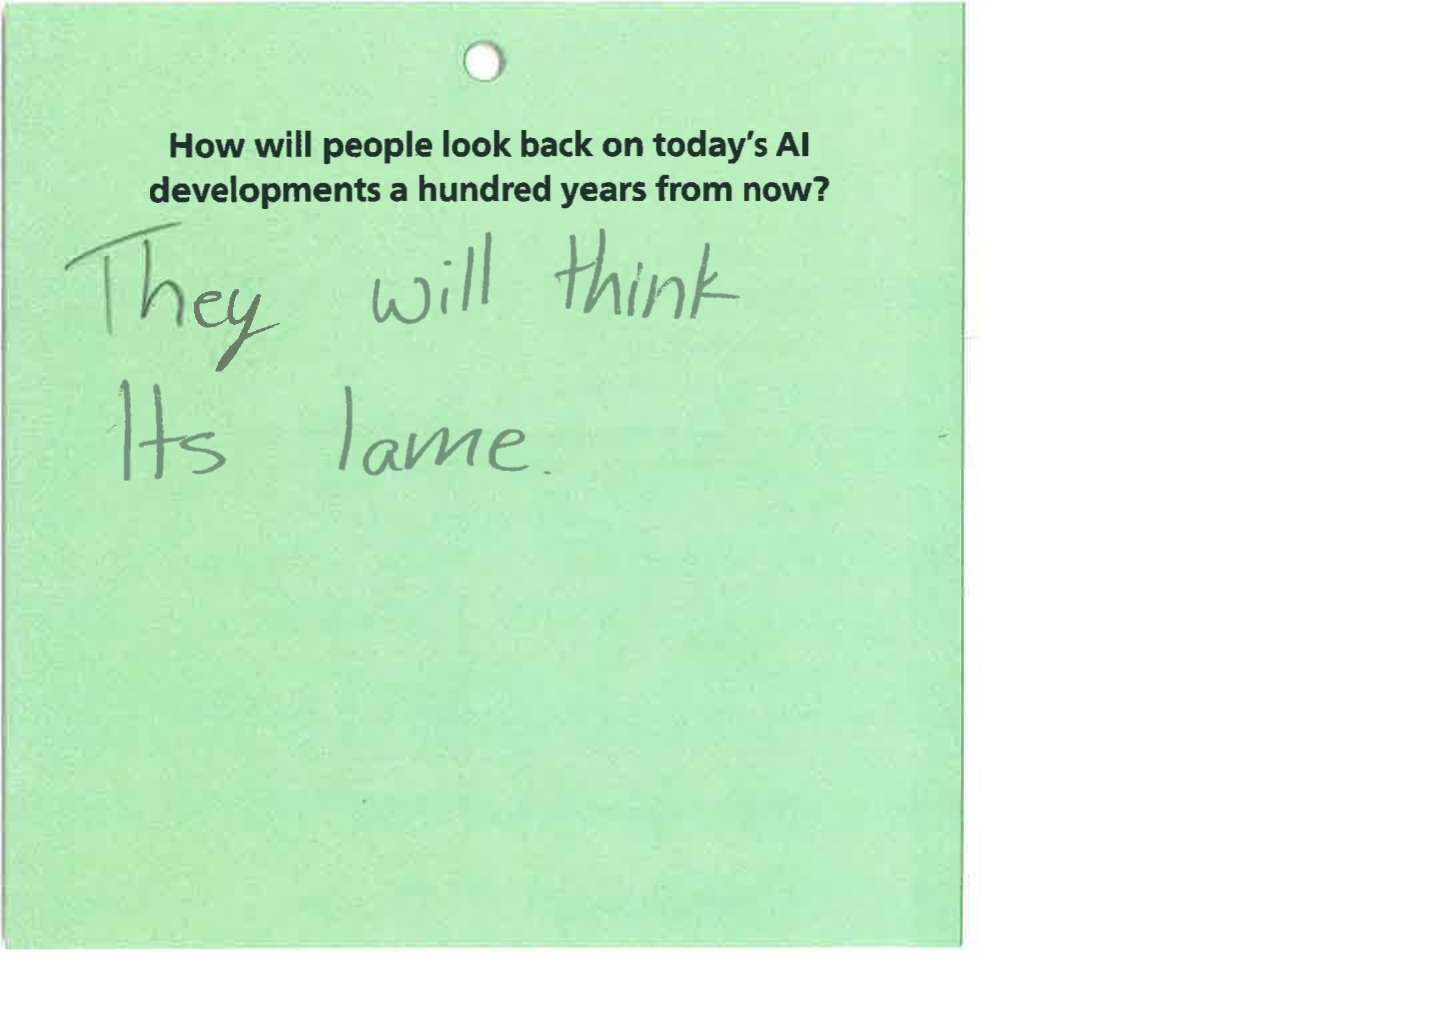 How will people look back on today's AI
developments a hundred years from now?
They will think
Its lame.